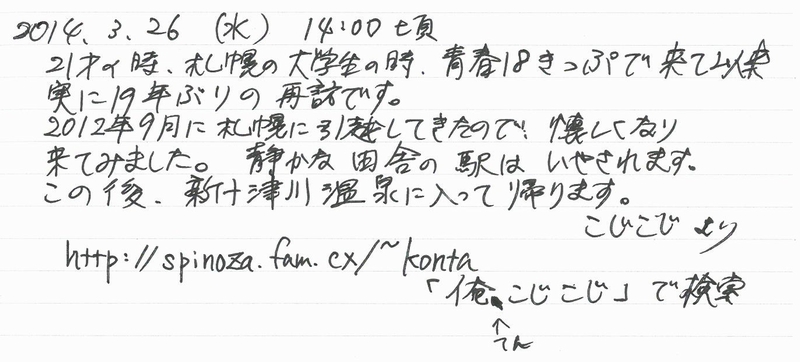 2014. 3. 26 (水) 14:00 頃
21才の時、札幌の大学生の時、青春18きっぷで来て以来
実に19年ぶりの再訪です。
2012年9月に札幌に引越してきたので、懐しくなり
来てみました。静かな田舎の駅はいやされます。
この後、新十津川温泉に入って帰ります。
こじこじより
http://spinoza.fam.cx/~konta
「俺、こじこじ」で検索
↑
てん